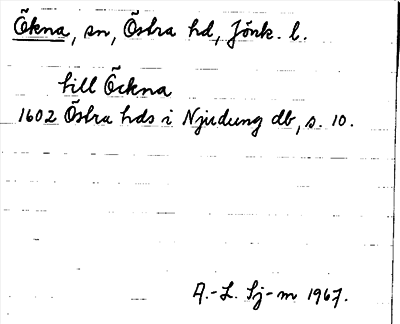 Ökna, sn, Östra hd, Jönk. l.
till Öckna
1602 Östra hds i Njudung db, s. 10.
A.-L. Sj-m 1967.